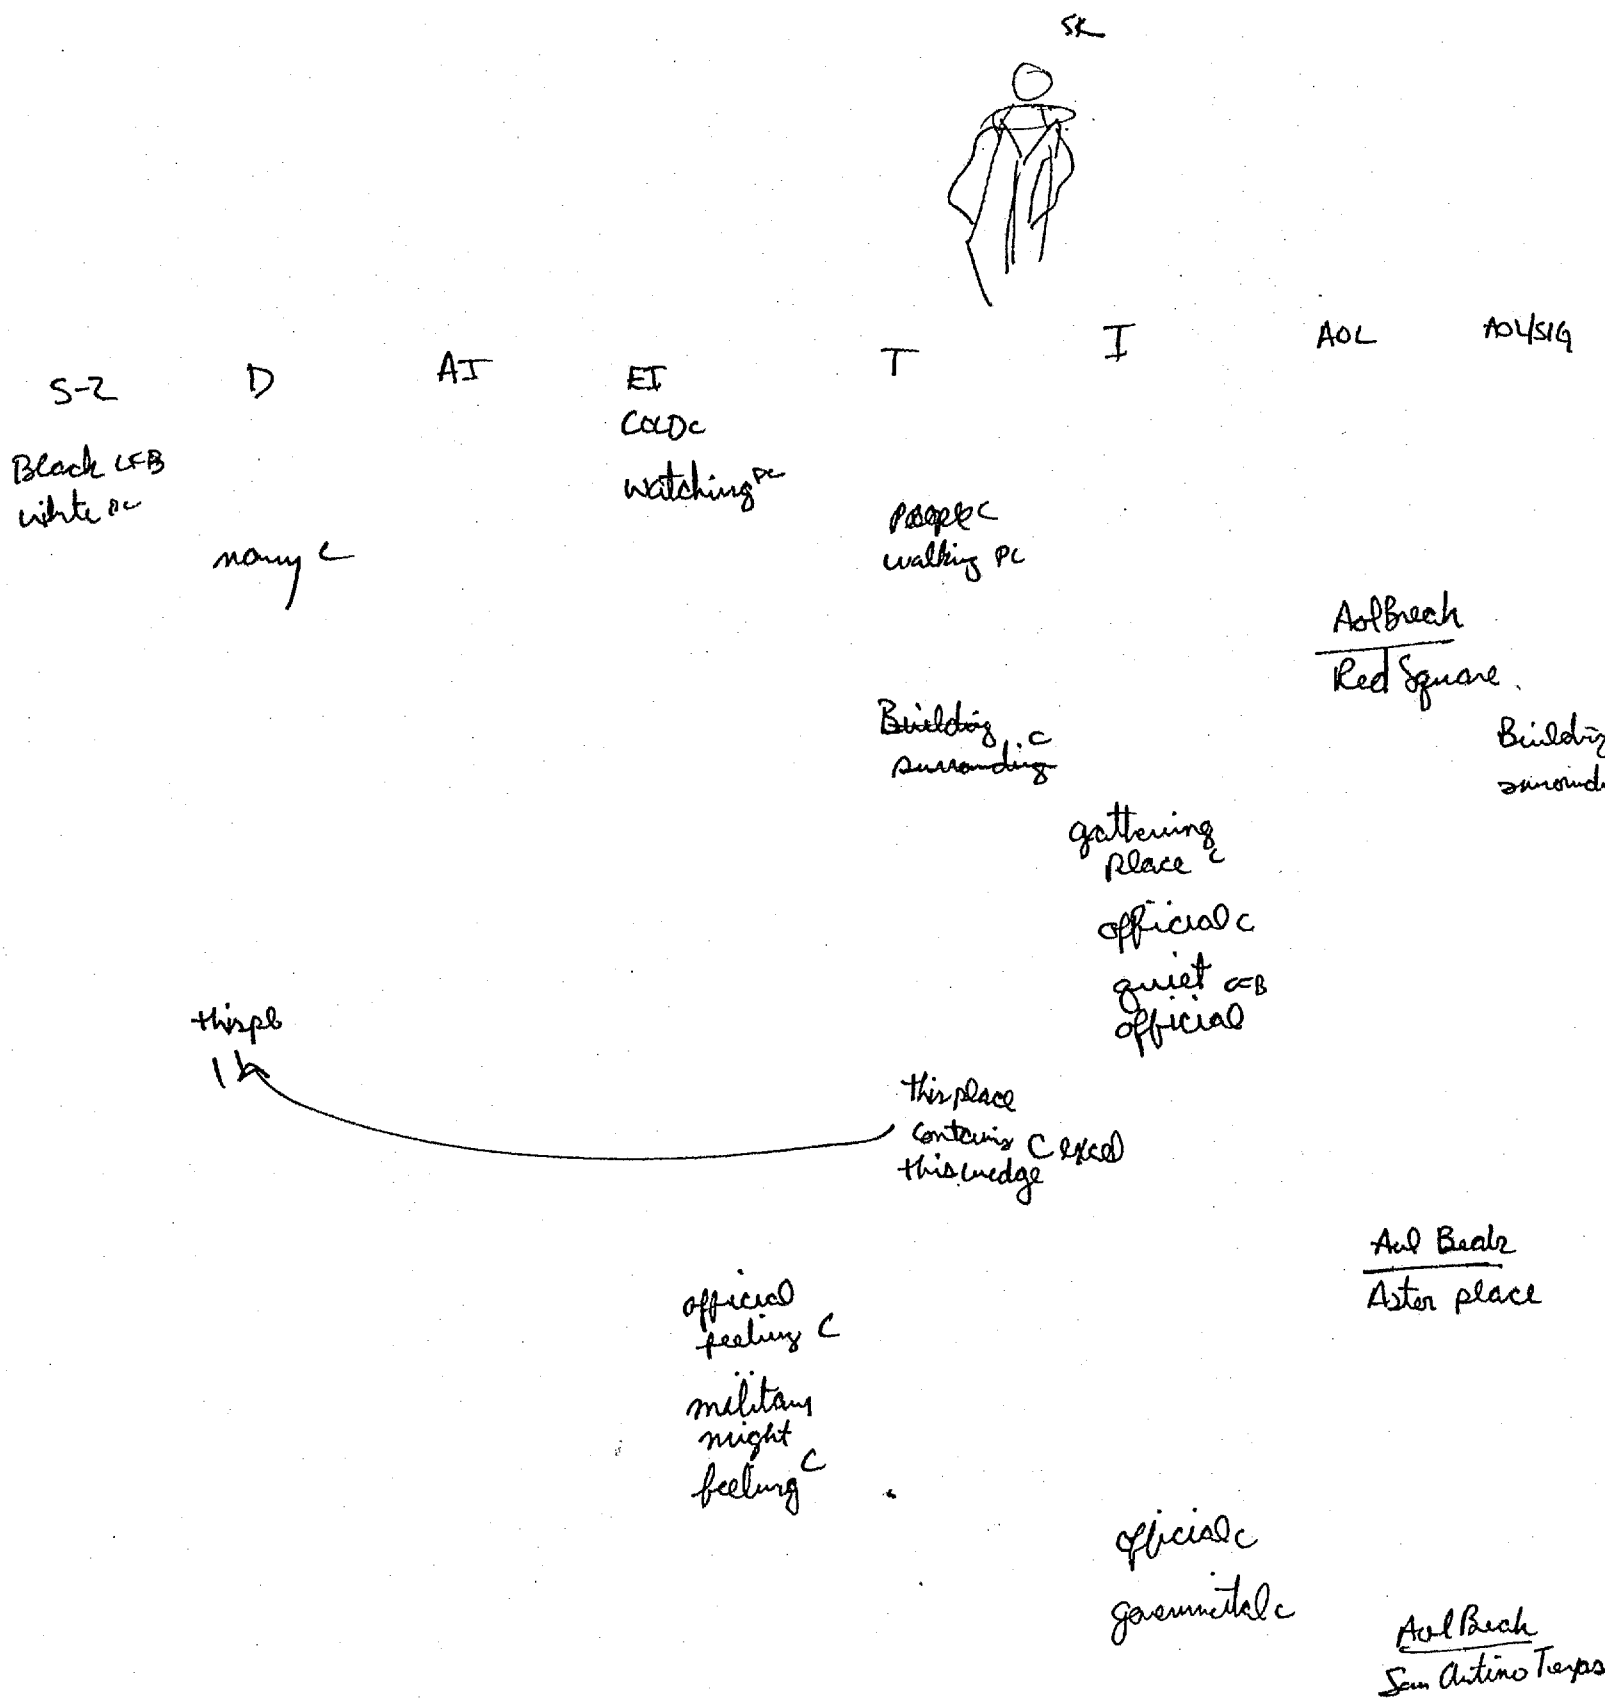 SK
S-2 D AI EI T I AOL AOL/SIG
COLD C
Black CFB
white PC
watching PC
People C
walking PC
many C
Aol Break
Red Square.
Building
surrounding C
Building
gathering
place C
official C
quiet CFB
official
this pl
this place
contains C excel
this wedge
Aol Break
Aster place
official
feeling C
military
might
feeling C
official C
Aol Break